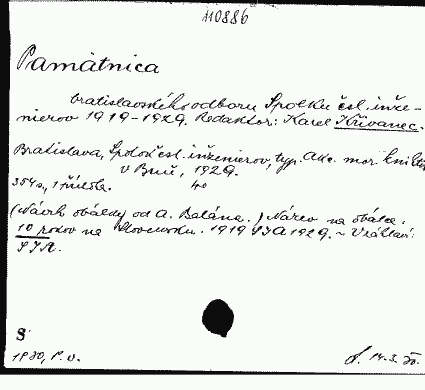 110886
Památnica
bratislavského odboru Spolku čsl. inže-
nierov 1919-1929. Redaktor: Karel Křivanec.
Bratislava, Spolok čsl. inženierov, typ. Akc. mor. kniht.
v Brně, 1929.
354 s., 1 příl. 4°
(Návrh obálky od A. Balána.) Názov na obálce:
10 rokov na Slovensku. 1919 SIA 1929. ~ V záhlaví:
SIA.
S
1930, P. v. 14.3.30.